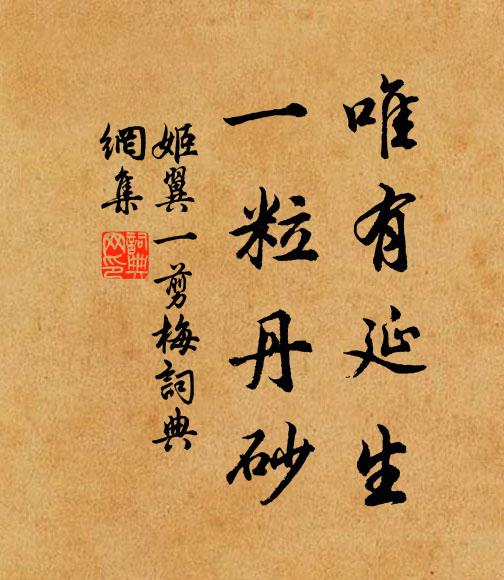 唯有延生
一粒丹砂
姬翼一剪梅詞典
網集
詞典
网印